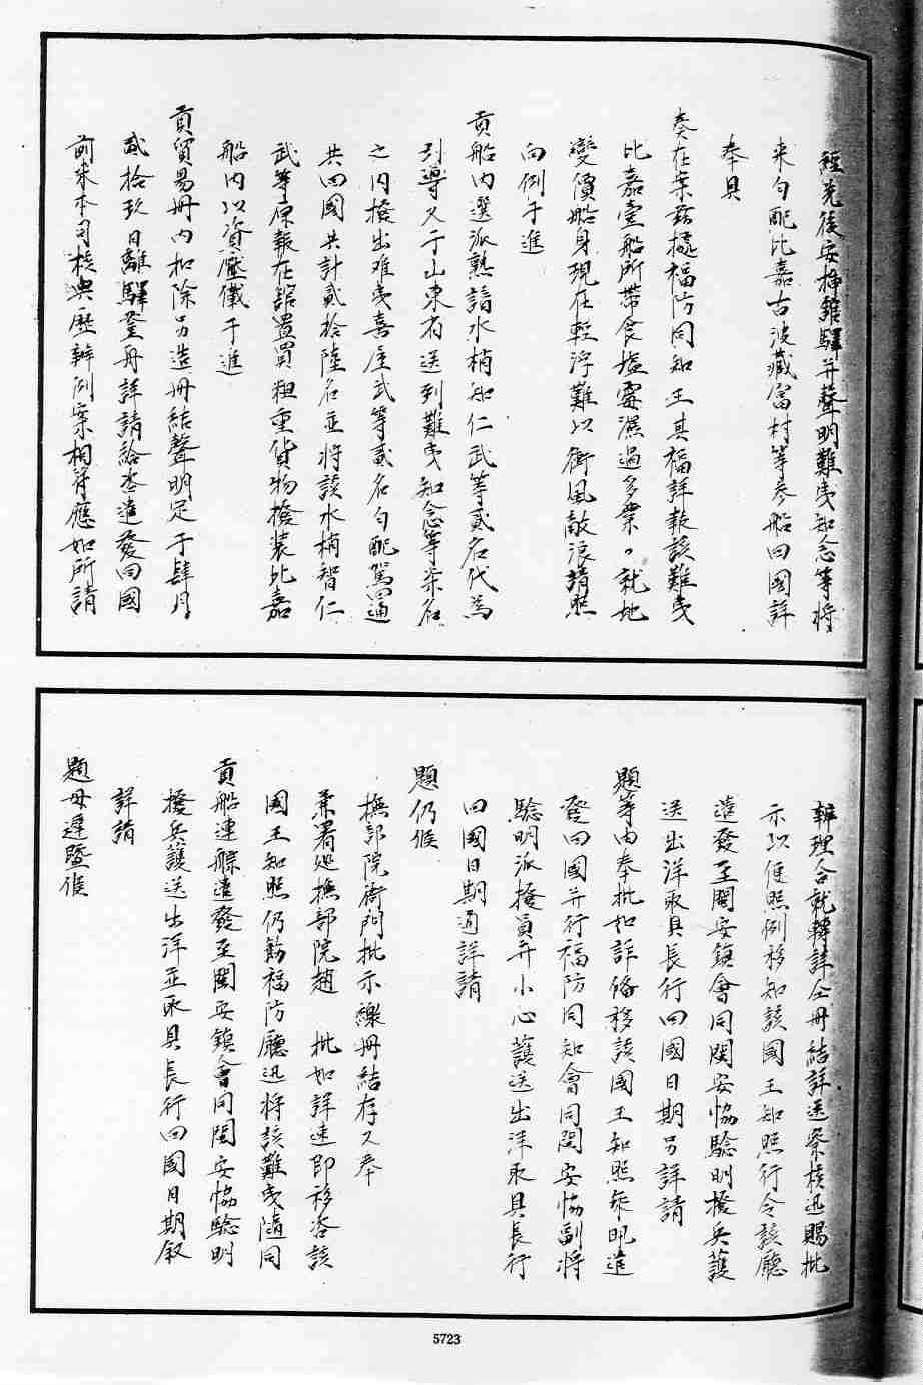 經先後安揷館驛并聲明難夷知念等將
來勻配比嘉古波藏當村等叁船回國詳
奉具
奏在案茲據福防同知王其福詳報該難夷
比嘉壹船所帶食塩霉濕過多業　就地
變價船身現在輕浮難以衝風敵浪請照
向例于進
貢船内選派熟諳水梢知仁武等貳名代為
引導又于山東省送到難夷知念等柒名
之内撥出难夷喜屋武等貳名勻配駕逥
共回國共計貳拾陸名並將該水梢智仁
武等原報在舘置買粗重貨物撥装比嘉
船内以資壓儎于進
貢貿易冊内扣除另造冊結聲明定于肆月
貳拾玖日離驛登舟詳請給咨遣發回國
前來本司核與歷辦例案相符應如所請
辦理合就轉詳仝冊結詳送察核迅賜批
示以便照例移知該國王知照行令該廳
遣發至閩安鎮會同閩安恊驗明撥兵護
送出洋取具長行回國日期另詳請
題等由奉批如詳俻移該國王知照
發回國并行福防同知會同閩安恊副將
驗明派撥員弁小心護送出洋取具長行
回國日期通詳請
題仍候
撫部院衙門批示繳冊結存又奉
兼署廵撫部院趙　批如詳速即移咨該
國王知照仍飭福防廳迅將該難夷隨同
貢船連䑸遣發至閩安鎮會同閩安恊驗明
撥兵護送出洋並取具長行回國日期叙
詳請
題毋遲暨候
5723